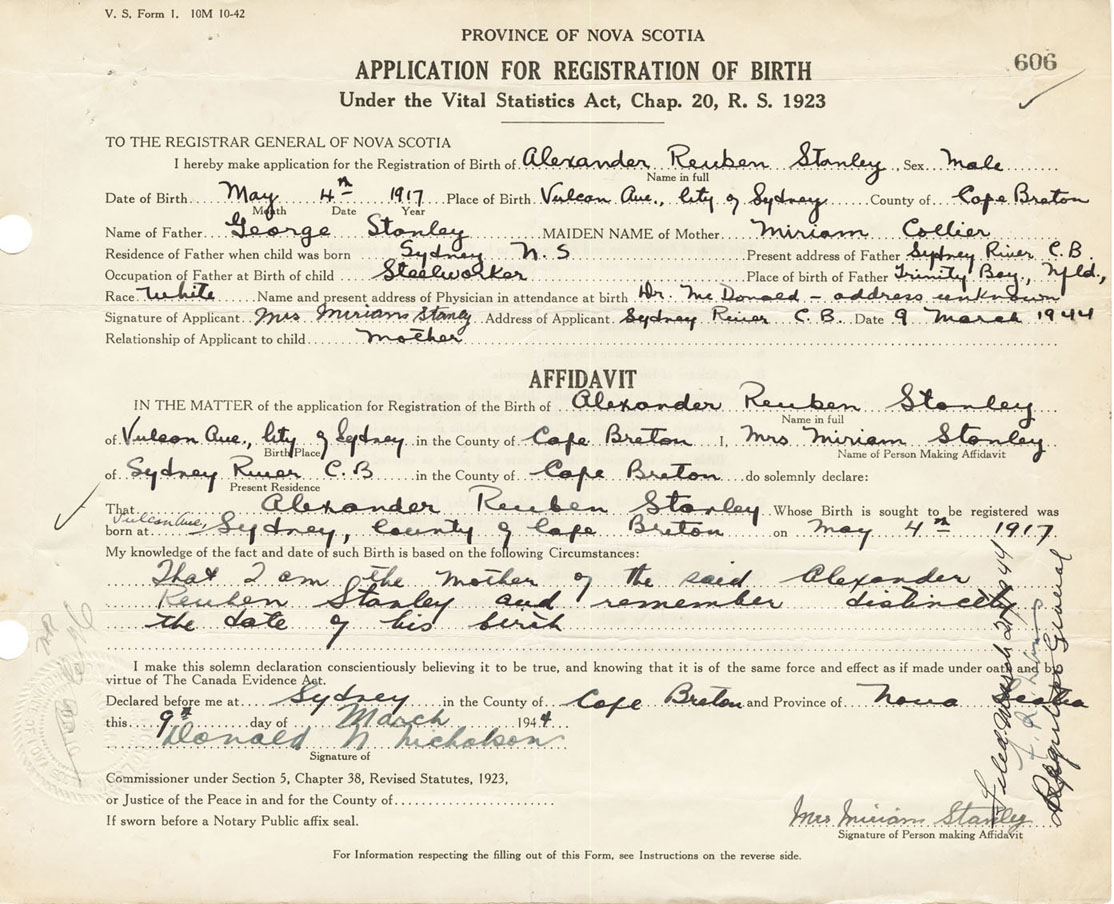 V. S. Form 1. 10M 10-42
PROVINCE OF NOVA SCOTIA
606
APPLICATION FOR REGISTRATION OF BIRTH
Under the Vital Statistics Act, Chap. 20, R. S. 1923
TO THE REGISTRAR GENERAL OF NOVA SCOTIA
I hereby make application for the Registration of Birth of Alexander Reuben Stanley Sex Male
Name in full
Date of Birth May 4th 1917 Place of Birth Vulcan Ave., City of Sydney County of Cape Breton
Month Date Year
Name of Father George Stanley MAIDEN NAME of Mother Miriam Collier
Residence of Father when child was born Sydney N. S Present address of Father Sydney River C. B.
Occupation of Father at Birth of child Steelworker Place of birth of Father Trinity Bay, Nfld,
Race White Name and present address of Physician in attendance at birth Dr. McDonald - address unknown
Signature of Applicant Mrs Miriam Stanley Address of Applicant Sydney River C. B. Date 9 March 1944
Relationship of Applicant to child mother
AFFIDAVIT
IN THE MATTER of the application for Registration of the Birth of Alexander Reuben Stanley
Name in full
of Vulcan Ave., City of Sydney in the County of Cape Breton I, Mrs Miriam Stanley
Birth Place Name of Person Making Affidavit
of Sydney River C. B in the County of Cape Breton do solemnly declare:
Present Residence
That Alexander Reuben Stanley Whose Birth is sought to be registered was
born at Vulcan Ave, Sydney, County of Cape Breton on May 4th 1917
My knowledge of the fact and date of such Birth is based on the following Circumstances:
That I am the mother of the said Alexander
Reuben Stanley and remember distinctly
the date of his birth
I make this solemn declaration conscientiously believing it to be true, and knowing that it is of the same force and effect as if made under oath and by
virtue of The Canada Evidence Act.
Declared before me at Sydney in the County of Cape Breton and Province of Nova Scotia
this 9th day of March 1944
Donald N Nicholson
Signature of
Commissioner under Section 5, Chapter 38, Revised Statutes, 1923,
or Justice of the Peace in and for the County of
If sworn before a Notary Public affix seal.
Mrs Miriam Stanley
Signature of Person making Affidavit
For Information respecting the filling out of this Form, see Instructions on the reverse side.
Filed March 27 1944
Registrar General